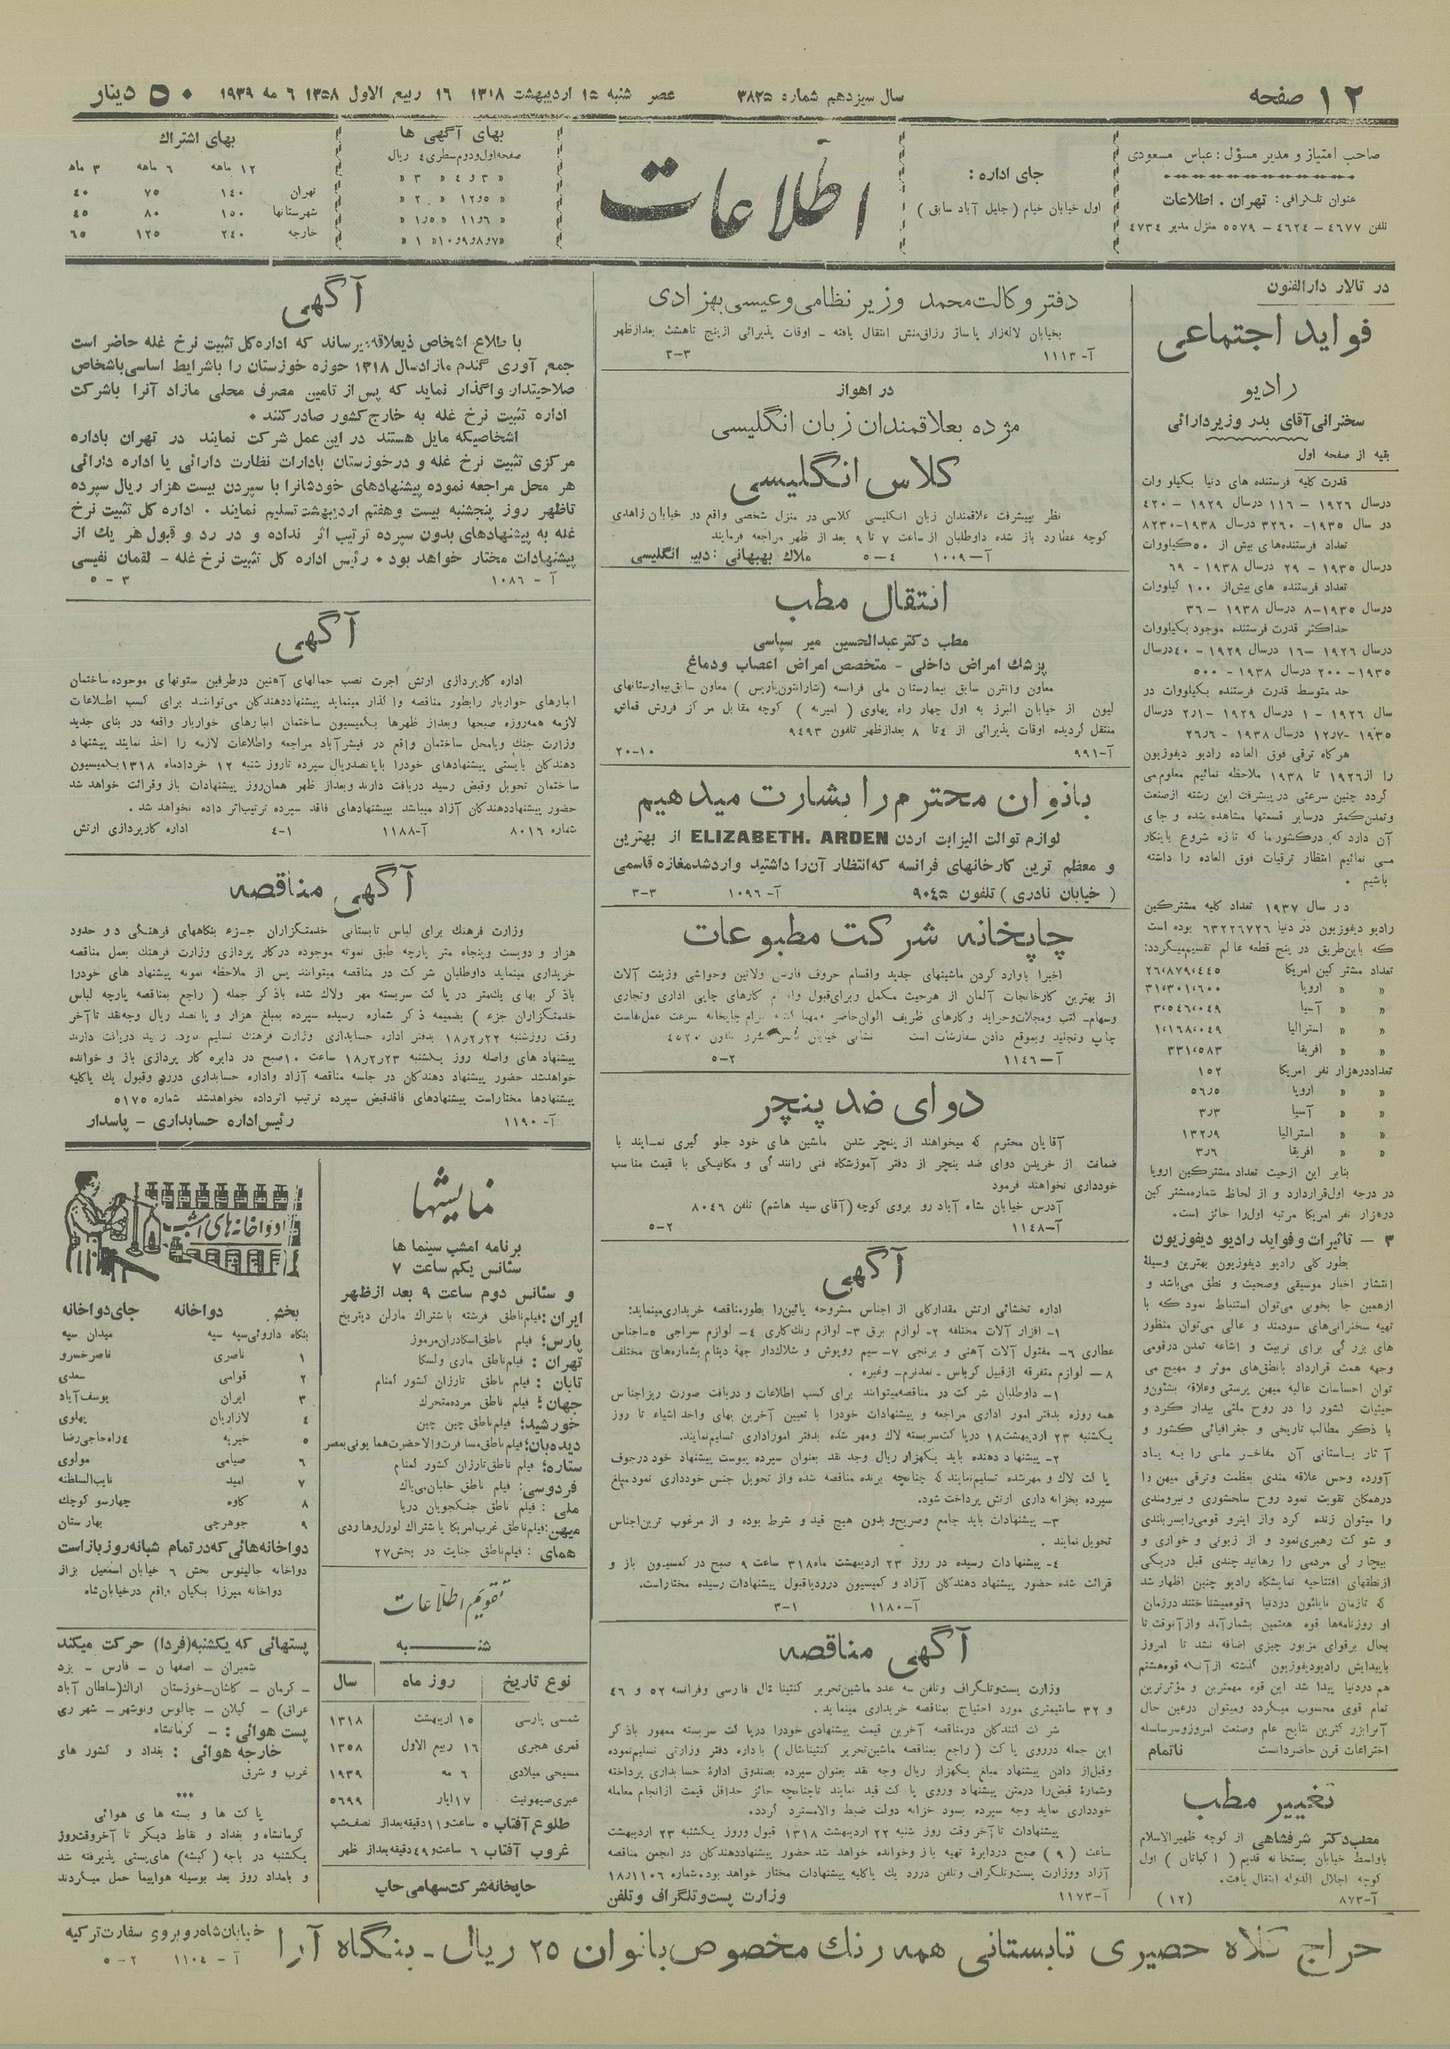 ۱۲ صفحه
سال سیزدهم شماره ۳۸۲۵
عصر شنبه ۱۵ اردیبهشت ۱۳۱۸ ۱۶ ربیع الاول ۱۳۵۸ ۶ مه ۱۹۳۹
۵۰ دینار
صاحب امتیاز و مدیر مسؤل : عباس مسعودی
عنوان تلگرافی: تهران . اطلاعات
تلفن ۴۶۷۷ - ۴۶۲۴ - ۵۵۷۹ منزل مدیر ۴۷۳۴
جای اداره :
اول خیابان خیام ( جلیل آباد سابق )
اطلاعات
بهای آگهی ها
صفحه اول و دوم سطری ٤ ریال
بهای اشتراك
۱۲ ماهه ۶ ماهه ۳ ماه
تهران ۱۴۰ ۷۵ ۴۰
شهرستانها ۱۵۰ ۸۰ ۴۵
خارجه ۲۴۰ ۱۲۵ ۶۵
در تالار دارالفنون
فواید اجتماعی
رادیو
سخنرانی آقای بدر وزیر دارائی
بقیه از صفحه اول
قدرت کلیه فرستنده های دنیا بکیلو وات
درسال ۱۹۲۶ - ۱۱۶ درسال ۱۹۲۹ - ۴۲۰
در سال ۱۹۳۵- ۳۲۶۰ درسال ۱۹۳۸-۸۲۳۰
تعداد فرستنده‌های بیش از ۵۰ کیلووات
درسال ۱۹۳۵ - ۲۹ درسال ۱۹۳۸ - ۶۹
تعداد فرستنده های بیش‌از ۱۰۰ کیلووات
درسال ۱۹۳۵-۸ درسال ۱۹۳۸ - ۳۶
حداکثر قدرت فرستنده موجود بکیلووات
درسال ۱۹۲۶ -۱۶ درسال ۱۹۲۹ - ۴۰ درسال
۱۹۳۵- ۲۰۰ درسال ۱۹۳۸ - ۵۰۰
حد متوسط قدرت فرستنده بکیلووات در
سال ۱۹۲۶ - ۱ درسال ۱۹۲۹ -۲٫۱ درسال
۱۹۳۵ -۱۲٫۷ درسال ۱۹۳۸ - ۲۶٫۶
هرگاه ترقی فوق العاده رادیو دیفوزیون
را از ۱۹۲۶ تا ۱۹۳۸ ملاحظه نمائیم معلوم می
گردد چنین سرعتی درپیشرفت این رشته ازصنعت
وتمدن‌کمتر درسایر قسمتها مشاهده شده و جای
آن دارد که درکشورما که تازه شروع باینکار
می نمائیم انتظار ترقیات فوق العاده را داشته
باشیم .
در سال ۱۹۳۷ تعداد کلیه مشترکین
رادیو دیفوزیون در دنیا ۶۳۲۲۶۷۲۶ بوده است
که باین‌طریق در پنج قطعه عالم تقسیم‌میگردد:
تعداد مشترکین امریکا ۲۶،۸۷۹،۴۴۵
« « اروپا ۳۱،۳۰۱،۶۰۰
« « آسیا ۳،۵۴۶،۰۴۹
« « استرالیا ۱،۱۶۸،۰۴۹
« « افریقا ۳۳۱،۵۸۳
تعداددرهزار نفر امریکا ۱۵۲
« « اروپا ۵۶٫۵
« « آسیا ۳٫۳
« « استرالیا ۱۳۲٫۹
« « افریقا ۳٫۶
بنابر این ازحیث تعداد مشترکین اروپا
در درجه اول‌قراردارد و از لحاظ شماره‌مشترکین
درهزار نفر امریکا مرتبه اول‌را حائز است.
۳ - تاثیرات و فواید رادیو دیفوزیون
بطور کلی رادیو دیفوزیون بهترین وسیلهٔ
انتشار اخبار موسیقی وصحبت و نطق می‌باشد و
ازهمین جا بخوبی می‌توان استنباط نمود که با
تهیه سخنرانی‌های سودمند و عالی می‌توان منظور
های بزرگی برای تربیت و اشاعه تمدن درقومی
وجهه همت قرارداد بانطق‌های موثر و مهیج می
توان احساسات عالیه میهن پرستی وعلاقه بشئون‌و
حیثیات کشور را در روح ملتی بیدار کرد و
با ذکر مطالب تاریخی و جغرافیائی کشور و
آثار باستانی آن مفاخر ملی را به یاد
آورده وحس علاقه مندی بعظمت وترقی میهن را
درهمگان تقویت نمود روح سلحشوری و نیرومندی
را میتوان زنده کرد واز اینرو قومی‌رابسربلندی
و شوکت رهبری‌نمود و از زبونی و خواری و
بیچارگی مردمی را رهانید چندی قبل دریکی
ازنطقهای افتتاحیه نمایشگاه رادیو چنین اظهار شد
که تازمان ناپلئون دردنیا ۶ قوه‌میشناختند درزمان
او روزنامه‌ها قوه هفتمین بشمارآمد وازآنوقت تا
بحال برقوای مزبور چیزی اضافه نشد تا امروز
باپیدایش رادیودیفوزیون گذشته ازآنکه قوه‌هشتم
هم دردنیا پیدا شد این قوه مهمترین و مؤثرترین
تمام قوی محسوب میگردد ومیتوان درعین حال
آنرابزرگترین نتایج علم وصنعت امروز وسرسلسله
اختراعات قرن حاضردانست ناتمام
تغییر مطب
مطب دکتر شرفشاهی از کوچه ظهیرالاسلام
باواسط خیابان پستخانه قدیم ( اکباتان ) اول
کوچه اجلال الدوله انتقال یافت.
آ-۸۷۳ (۱۲)
دفتر وکالت محمد وزیر نظامی و عیسی بهزادی
بخیابان لاله‌زار پاساژ رزاق‌منش انتقال یافته - اوقات پذیرائی ازپنج تاهشت بعدازظهر
آ- ۱۱۱۳ ۳-۲
در اهواز
مژده بعلاقمندان زبان انگلیسی
کلاس انگلیسی
نظر بپیشرفت علاقمندان زبان انگلیسی کلاسی در منزل شخصی واقع در خیابان زاهدی
کوچه عطارد باز شده داوطلبان از ساعت ۷ تا ۹ بعد از ظهر مراجعه فرمایند
آ-۱۰۰۹ ۴-۵ ملاك بهبهانی : دبیر انگلیسی
انتقال مطب
مطب دکتر عبدالحسین میر سپاسی
پزشك امراض داخلی - متخصص امراض اعصاب ودماغ
معاون وانترن سابق بیمارستان ملی فرانسه (شارانتون‌پاریس ) معاون سابق‌بیمارستانهای
لیون از خیابان البرز به اول چهار راه پهلوی ( امیریه ) کوچه مقابل مرکز فروش قماش
منتقل گردیده اوقات پذیرائی از ۴ تا ۸ بعدازظهر تلفون ۹۴۹۳
آ-۹۹۱ ۱۰-۲۰
بانوان محترم را بشارت میدهیم
لوازم توالت الیزابت اردن ELIZABETH. ARDEN از بهترین
و معظم ترین کارخانهای فرانسه که‌انتظار آن‌را داشتید واردشد مغازه قاسمی
( خیابان نادری ) تلفون ۹۰۴۵ آ- ۱۰۹۶ ۳-۳
چاپخانه شرکت مطبوعات
اخیرا باوارد کردن ماشینهای جدید واقسام حروف فارسی ولاتین وحواشی وزینت آلات
از بهترین کارخانجات آلمان از هرحیث مکمل وبرای‌قبول کارهای چاپی اداری وتجاری
وسهام- کتب ومجلات‌وجراید وکارهای ظریف الوان‌حاضر چاپخانه سرعت عمل‌نفاست
چاپ وتجلید وبموقع دادن سفارشات است
آ-۱۱۴۶ ۲-۵
دوای ضد پنچر
آقایان محترم که میخواهند از پنچر شدن ماشین های خود جلو گیری نمایند با
ضمانت از خریدن دوای ضد پنچر از دفتر آموزشگاه فنی رانندگی و مکانیکی با قیمت مناسب
خودداری نخواهند فرمود
آدرس خیابان شاه آباد رو بروی کوچه (آقای سید هاشم) تلفن ۸۰۴۶
آ-۱۱۴۸ ۲-۵
آگهی
اداره تخشائی ارتش مقدارکلی از اجناس مشروحه پائین‌را بطورمناقصه خریداری‌مینماید:
۱- افزار آلات مختلفه ۲- لوازم برق ۳- لوازم رنك‌کاری ۴- لوازم سراجی ۵-اجناس
عطاری ۶- مفتول آلات آهنی و برنجی ۷-سیم روپوش و شلاك‌دار جهة دینام بشماره‌های مختلف
۸ - لوازم متفرقه ازقبیل کرباس . نمدنرم- وغیره .
۱- داوطلبان شرکت در مناقصه‌میتوانند برای کسب اطلاعات و دریافت صورت ریزاجناس
همه روزه بدفتر امور اداری مراجعه و پیشنهادات خودرا با تعیین آخرین بهای واحد اشیاء تا روز
یکشنبه ۲۳ اردیبهشت۱۸ درپاکت‌سربسته لاك ومهر شده بدفتر اموراداری تسلیم‌نمایند.
۲- پیشنهاد دهنده باید یکهزار ریال وجه نقد بعنوان سپرده پیوست پیشنهاد خود درجوف
پاکت لاك و مهرشده تسلیم‌نمایند که چنانچه برنده مناقصه شده واز تحویل جنس خودداری نمودمبلغ
سپرده بخزانه داری ارتش پرداخت شود.
۳- پیشنهادات باید جامع وصریح‌وبدون هیچ قید و شرط بوده و از مرغوب ترین‌اجناس
تحویل نمایند .
۴- پیشنهادات رسیده در روز ۲۳ اردیبهشت ماه۳۱۸ ساعت ۹ صبح در کمسیون باز و
قرائت شده حضور پیشنهاد دهندکان آزاد و کمیسیون درردیاقبول پیشنهادات رسیده مختاراست.
آ-۱۱۸۰ ۱-۳
آگهی مناقصه
وزارت پست‌وتلگراف وتلفن سه عدد ماشین‌تحریر کنتینانتال فارسی وفرانسه ۵۲ و ۴۶
و ۳۲ سانتیمتری مورد احتیاج بمناقصه خریداری مینماید .
شرکت کنندگان درمناقصه آخرین قیمت پیشنهادی خودرا درپاکت سربسته ممهور باذکر
این جمله درروی پاکت ( راجع بمناقصه ماشین‌تحریر کنتینانتال ) باداره دفتر وزارتی تسلیم‌نموده
وقبل‌از دادن پیشنهاد مبلغ یکهزار ریال وجه نقد بعنوان‌سپرده بصندوق ادارهٔ حسابداری پرداخته
وشمارهٔ قبض‌را درمتن پیشنهاد وروی پاکت قید نمایند تاچنانچه حائز حداقل قیمت ازانجام معامله
خودداری نماید وجه سپرده بسود خزانه دولت ضبط والامسترد گردد.
پیشنهادات تاآخر وقت روز شنبه ۲۲ اردیبهشت ۱۳۱۸ قبول وروز یکشنبه ۲۳ اردیبهشت
ساعت ( ۹ ) صبح دردایرهٔ تهیه باز وخوانده خواهد شد حضور پیشنهاددهندکان در انجمن مناقصه
آزاد ووزارت پست‌وتلگراف وتلفن دررد یك یاکلیه پیشنهادات مختار خواهد بود. شماره ۱۸٫۱۱۰۶
آ-۱۱۷۳ وزارت پست و تلگراف و تلفن
آگهی
باطلاع اشخاص ذیعلاقه میرساند که اداره‌کل تثبیت نرخ غله حاضر است
جمع آوری گندم مازادسال ۱۳۱۸ حوزه خوزستان را باشرایط اساسی‌باشخاص
صلاحیتدار واگذار نماید که پس از تامین مصرف محلی مازاد آنرا باشرکت
اداره تثبیت نرخ غله به خارج کشور صادرکنند .
اشخاصیکه مایل هستند در این عمل شرکت نمایند در تهران باداره
مرکزی تثبیت نرخ غله و درخوزستان بادارات نظارت دارائی یا اداره دارائی
هر محل مراجعه نموده پیشنهادهای خودشانرا با سپردن بیست هزار ریال سپرده
تاظهر روز پنجشنبه بیست وهفتم اردیبهشت تسلیم نمایند . اداره کل تثبیت نرخ
غله به پیشنهادهای بدون سپرده ترتیب اثر نداده و در رد و قبول هر یك از
پیشنهادات مختار خواهد بود . رئیس اداره کل تثبیت نرخ غله - لقمان نفیسی
آ - ۱۰۸۶ ۳-۵
آگهی
اداره کارپردازی ارتش اجرت نصب حمالهای آهنین درطرفین ستونهای موجوده ساختمان
انبارهای خواربار رابطور مناقصه واگذار مینماید پیشنهاددهندکان می‌توانند برای کسب اطلاعات
لازمه همه‌روزه صبحها وبعداز ظهرها بکمیسیون ساختمان انبارهای خواربار واقعه در بنای جدید
وزارت جنك وبامحل ساختمان واقع در فیشرآباد مراجعه واطلاعات لازمه را اخذ نمایند پیشنهاد
دهندکان بایستی پیشنهادهای خودرا باپانصدریال سپرده تاروز شنبه ۱۲ خرداد ماه ۱۳۱۸ بکمیسیون
ساختمان تحویل وقبض رسید دریافت دارند وبعداز ظهر همان‌روز پیشنهادات باز وقرائت خواهد شد
حضور پیشنهاددهندکان آزاد میباشد بپیشنهادهای فاقد سپرده ترتیب‌اثر داده نخواهد شد .
شماره ۸۰۱۶ آ-۱۱۸۸ ۱-۴ اداره کارپردازی ارتش
آگهی مناقصه
وزارت فرهنك برای لباس تابستانی خدمتگزاران جزء بنگاههای فرهنگی دو حدود
هزار و دویست وپنجاه متر پارچه طبق نمونه موجوده درکار پردازی وزارت فرهنك بعمل مناقصه
خریداری مینماید داوطلبان شرکت در مناقصه میتوانند پس از ملاحظه نمونه پیشنهاد های خودرا
باذکر بهای یك‌متر در پاکت سربسته مهر ولاك شده باذکر جمله ( راجع بمناقصه پارچه لباس
خدمتگزاران جزء ) بضمیمه ذکر شماره رسیده سپرده بمبلغ هزار و پانصد ریال وجه‌نقد تاآخر
وقت روزشنبه ۱۸٫۲٫۲۲ بدفتر اداره حسابداری وزارت فرهنك تسلیم نموده رسید دریافت دارند
پیشنهاد های واصله روز یکشنبه ۱۸٫۲٫۲۳ ساعت ۱۰صبح در دایره کار پردازی باز و خوانده
خواهدشد حضور پیشنهاد دهندکان در جلسه مناقصه آزاد واداره حسابداری دررد وقبول یك یاکلیه
پیشنهادها مختاراست بپیشنهادهای فاقدقبض سپرده ترتیب اثرداده نخواهدشد شماره ۵۱۷۵
آ- ۱۱۹۰ رئیس اداره حسابداری - پاسدار
نمایشها
برنامه امشب سینما ها
سئانس یکم ساعت ۷
و سئانس دوم ساعت ۹ بعد ازظهر
ایران : فیلم‌ناطق فرشته باشتراك مارلن دیتریخ
پارس : فیلم ناطق‌اسکادران‌مرموز
تهران : فیلم‌ناطق ماری ولسکا
تابان : فیلم ناطق تارزان کشور گمنام
جهان : فیلم ناطق مرده‌متحرك
خورشید : فیلم‌ناطق چین چین
دیده‌بان : فیلم‌ناطق مسافرت‌والاحضرت‌همایونی‌بمصر
ستاره : فیلم ناطق‌تارزان کشور گمنام
فردوسی : فیلم ناطق خلبان‌بی‌باك
ملی : فیلم ناطق جنگجویان دریا
میهن : فیلم‌ناطق غرب‌امریکا باشتراك لورل‌وهاردی
همای : فیلم‌ناطق جنایت در بخش۲۷
تقویم اطلاعات
شنبه
نوع تاریخ روز ماه سال
شمسی پارسی ۱۵ اردیبهشت ۱۳۱۸
قمری هجری ۱۶ ربیع الاول ۱۳۵۸
مسیحی میلادی ۶ مه ۱۹۳۹
عبری‌صیهونیت ۱۷ایار ۵۶۹۹
طلوع آفتاب ۵ ساعت‌و۱۱دقیقه‌بعداز نصف‌شب
غروب آفتاب ۶ ساعت‌و۴۹دقیقه‌بعداز ظهر
چاپخانه شرکت سهامی چاپ
دواخانه‌های امشب
بخش دواخانه جای دواخانه
بنگاه داروئی‌سپه سپه میدان سپه
۱ ناصری ناصرخسرو
۲ قوامی سعدی
۳ ایران یوسف‌آباد
۴ لازاریان پهلوی
۵ خیریه ۴راه‌حاجی‌رضا
۶ صیامی مولوی
۷ امید نایب‌السلطنه
۸ کاوه چهارسو کوچك
۹ جوهرچی بهارستان
دواخانه‌هائی که درتمام شبانه روز بازاست
دواخانه جالینوس بخش ۶ خیابان اسمعیل بزاز
دواخانه میرزا بکیان واقع درخیابان‌شاه
پستهائی که یکشنبه (فردا) حرکت میکند
شمیران - اصفهان - فارس - یزد
- کرمان - کاشان-خوزستان اراك(سلطان آباد
عراق) - گیلان - چالوس ونوشهر - شهر ری
پست هوائی : - کرمانشاه
خارجه هوائی : بغداد و کشور های
غرب و شرق
***
پاکت ها و بسته های هوائی
کرمانشاه و بغداد و نقاط دیگر تا آخروقت‌روز
یکشنبه در باجه (گیشه) های‌پستی پذیرفته شد
و بامداد روز بعد بوسیله هواپیما حمل میگردند
حراج کلاه حصیری تابستانی همه رنك مخصوص بانوان ۲۵ ریال - بنگاه آرا
خیابان‌شاه روبروی سفارت ترکیه
آ - ۱۱۰۴ ۲-۵